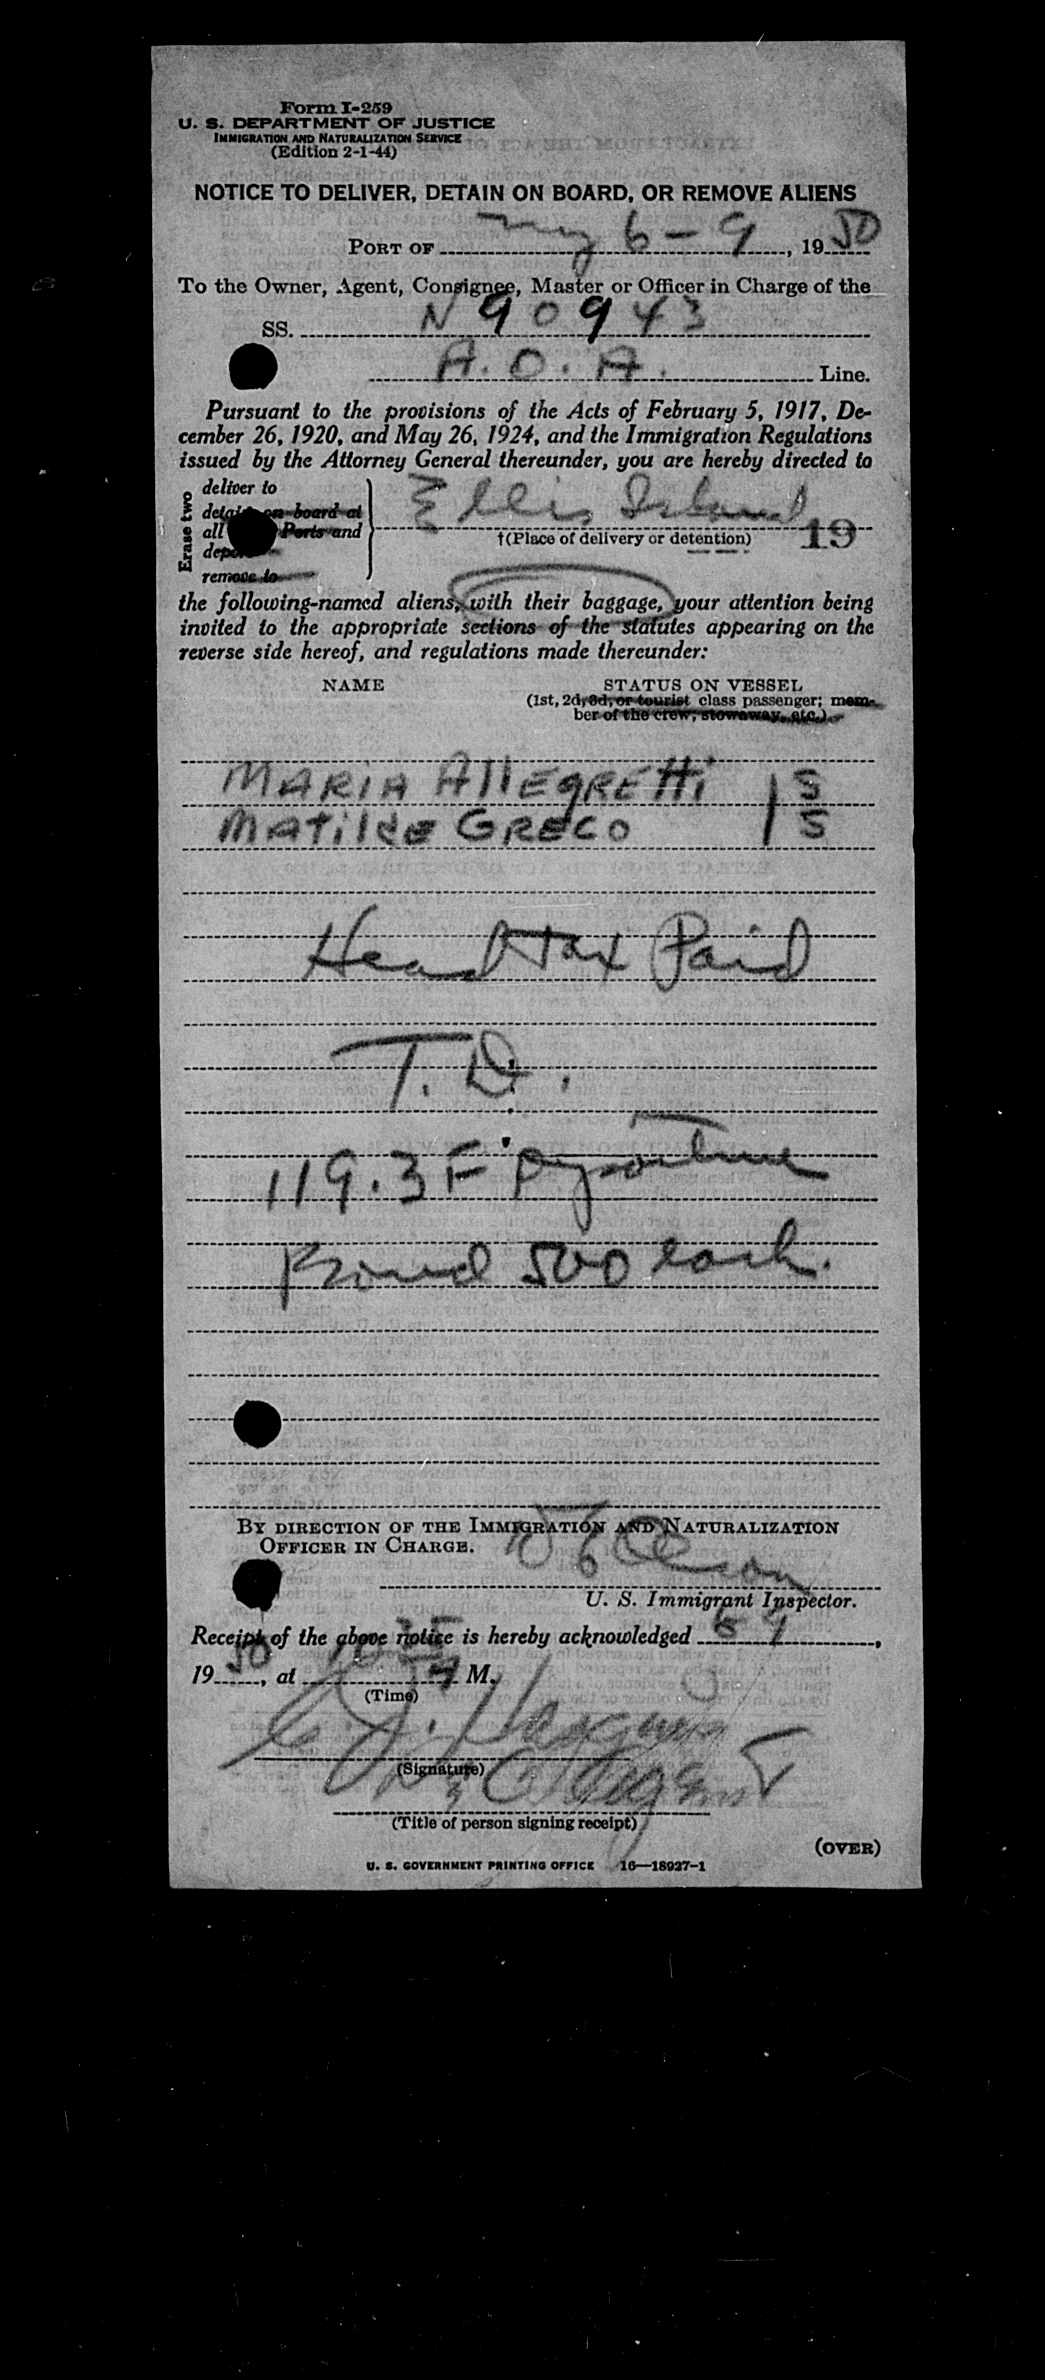 Form I-259
U. S. DEPARTMENT OF JUSTICE
IMMIGRATION AND NATURALIZATION SERVICE
(Edition 2-1-44)
NOTICE TO DELIVER, DETAIN ON BOARD, OR REMOVE ALIENS
PORT OF 6-9, 1950
To the Owner, Agent, Consignee, Master or Officer in Charge of the
SS. N 90943
A.O.A. Line.
Pursuant to the provisions of the Acts of February 5, 1917, De-
cember 26, 1920, and May 26, 1924, and the Immigration Regulations
issued by the Attorney General thereunder, you are hereby directed to
Erase two
deliver to
detain on board at
all Ports and
deport
remove to
Ellis Island
†(Place of delivery or detention) 19
the following-named aliens, with their baggage, your attention being
invited to the appropriate sections of the statutes appearing on the
reverse side hereof, and regulations made thereunder:
NAME STATUS ON VESSEL
(1st, 2d, 3d, or tourist class passenger; mem-
ber of the crew, stowaway, etc.)
MARIA AllEgREtti
MAtildE GRECO
Head tax Paid
T.D.
119.3F
Bond 500 each.
BY DIRECTION OF THE IMMIGRATION AND NATURALIZATION
OFFICER IN CHARGE.
U. S. Immigrant Inspector.
Receipt of the above notice is hereby acknowledged 6 9,
1950, at M.
(Time)
(Signature)
(Title of person signing receipt)
(OVER)
U. S. GOVERNMENT PRINTING OFFICE 16—18927-1